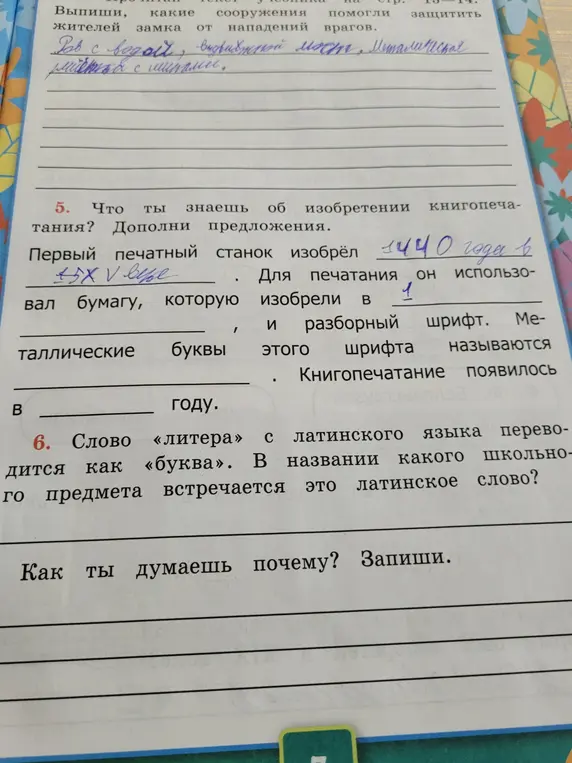 Выпиши, какие сооружения помогли защитить
жителей замка от нападений врагов.
Ров с водой, мост, Металические
с шипами.
5. Что ты знаешь об изобретении книгопеча-
тания? Дополни предложения.
Первый печатный станок изобрёл 1440 года в
15X V веке . Для печатания он использо-
вал бумагу, которую изобрели в 1
, и разборный шрифт. Ме-
таллические буквы этого шрифта называются
. Книгопечатание появилось
в году.
6. Слово «литера» с латинского языка перево-
дится как «буква». В названии какого школьно-
го предмета встречается это латинское слово?
Как ты думаешь почему? Запиши.